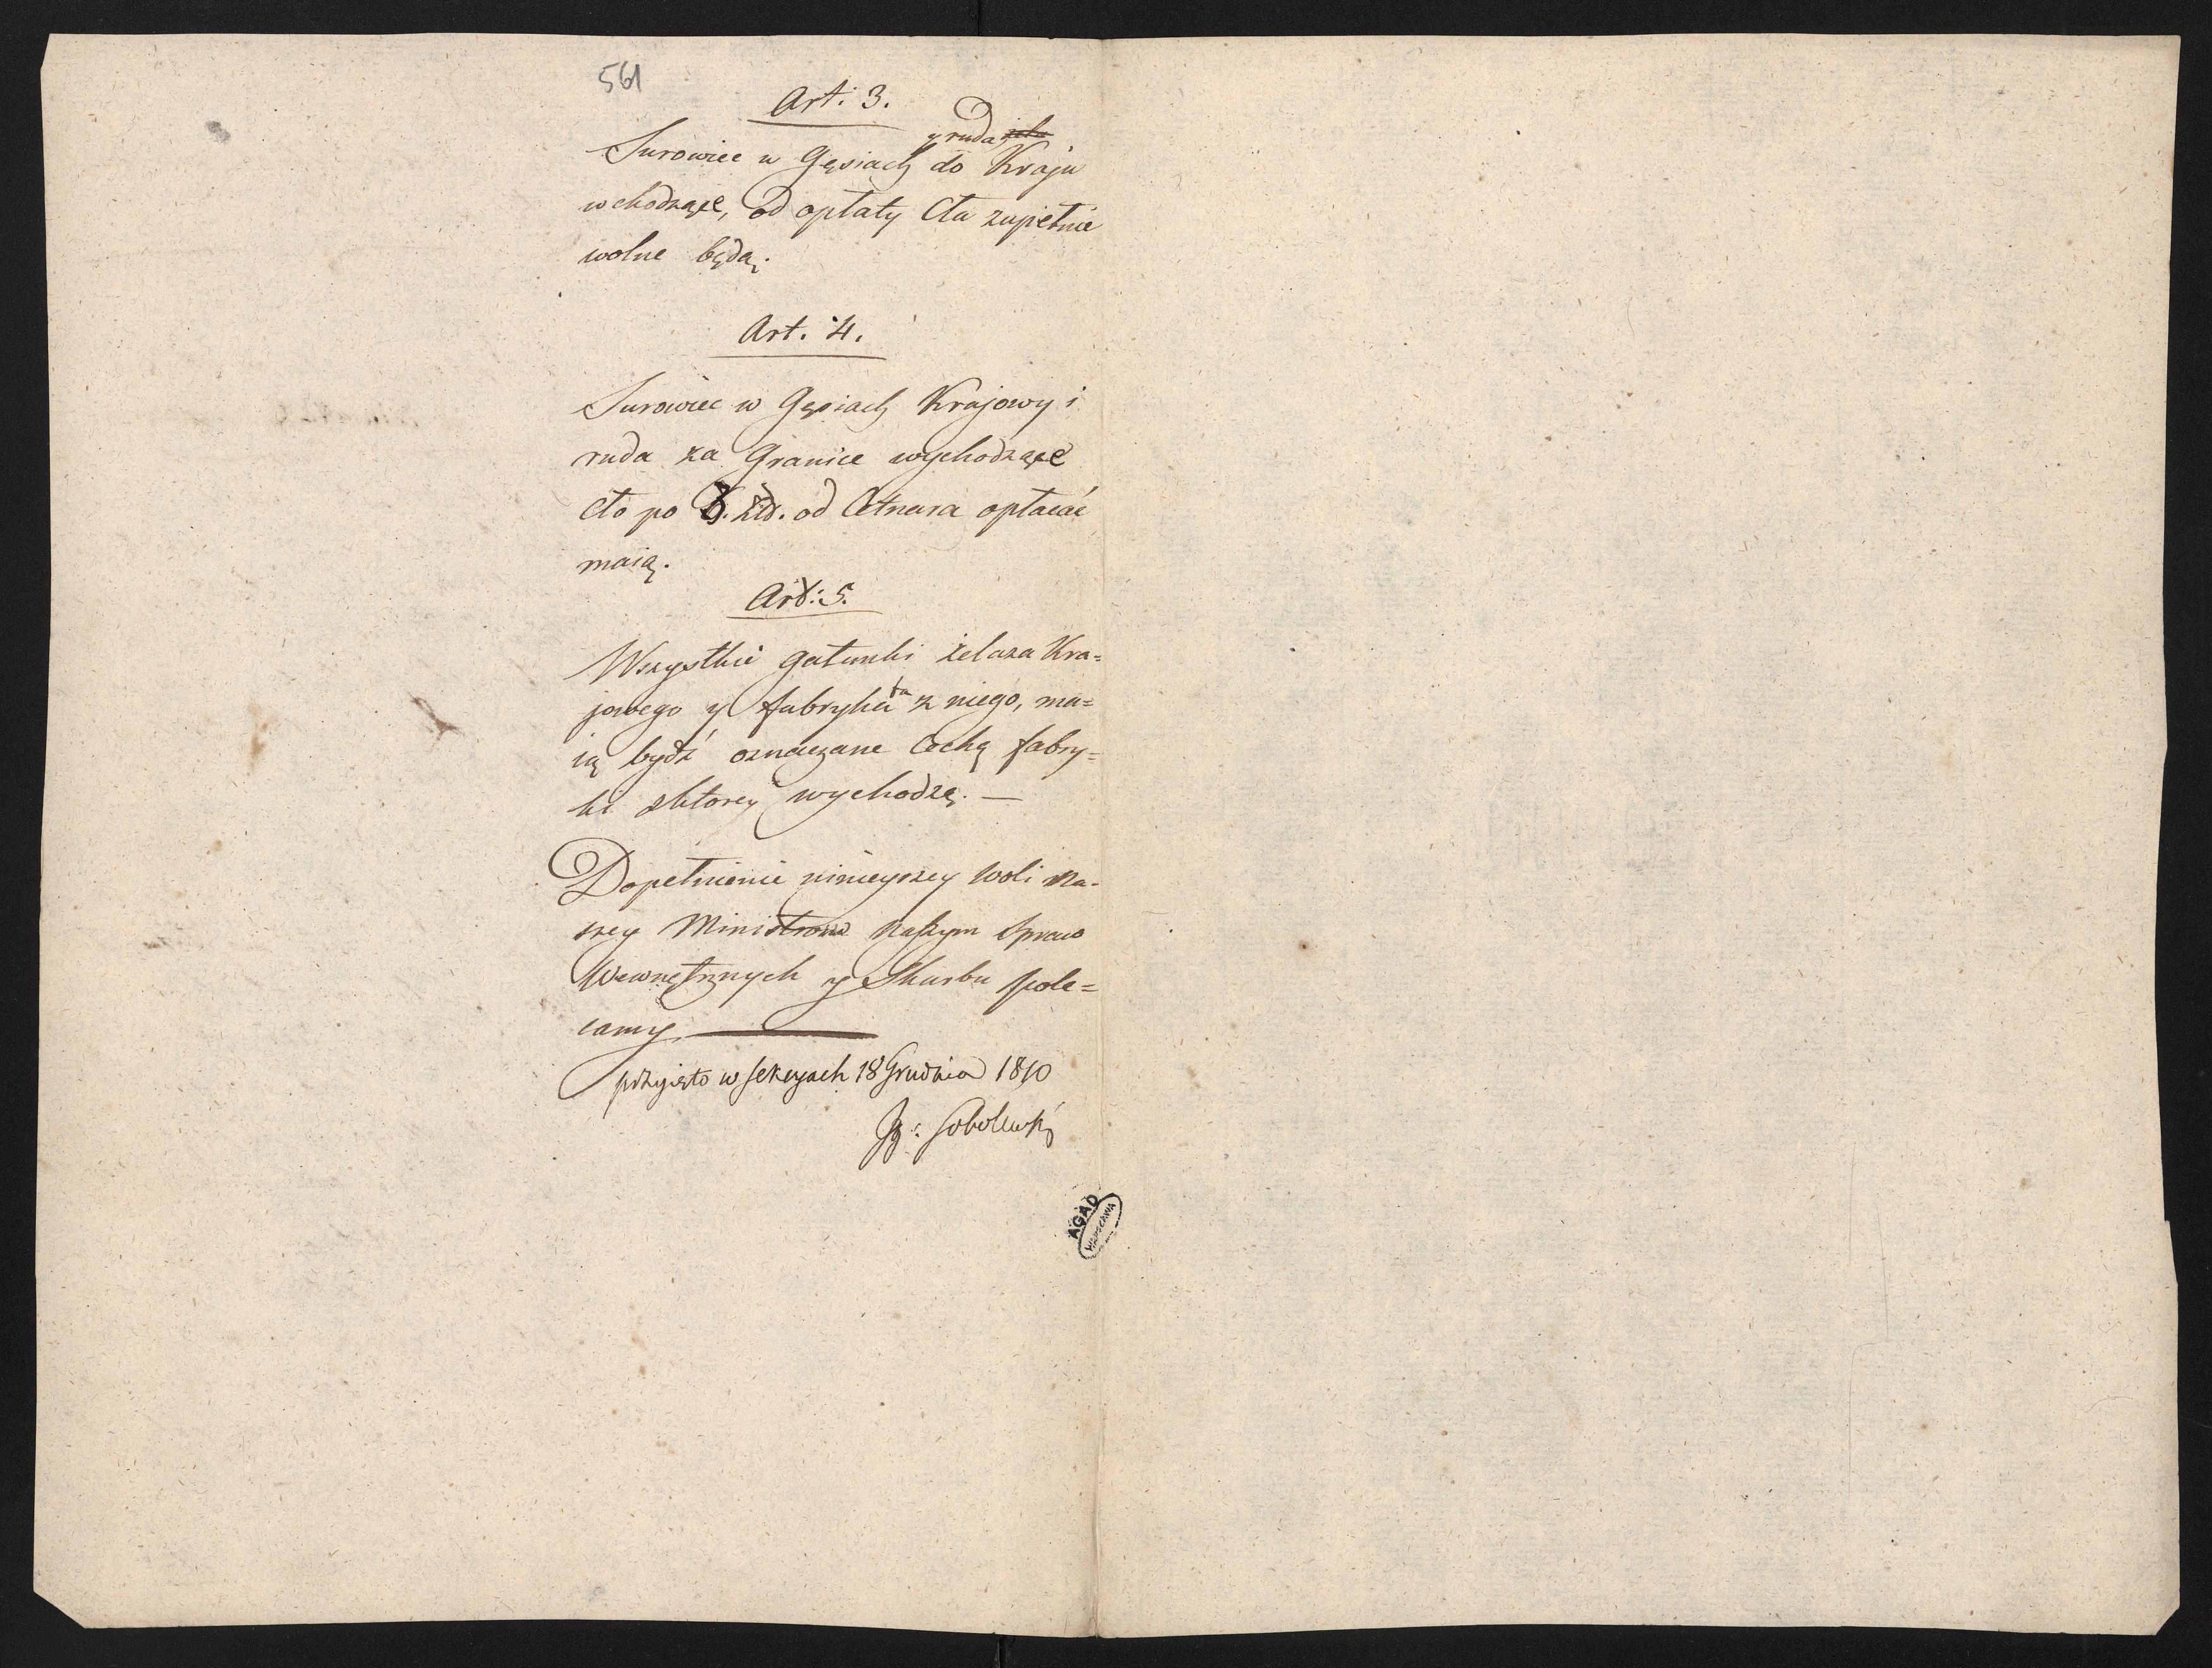 561
Art: 3.
y ruda
Surowiec w Gęsiach do Kraju
wchodzące, od opłaty Cła zupełnie
wolne będą.
Art. 4.
Surowiec w Gęsiach Krajowy i
ruda za Granice wychodzące
cło po złd. od Cetnara opłacać
maią.
Art: 5.
Wszystkie gatunki żelaza Kra=
jowego y fabryka
ta
z niego, ma=
ią bydź oznaczane Cechą fabry=
ki zktorey wychodzą. —
Dopełnienie ninieyszey woli Na-
szey Ministrom Naszym Spraw
Wewnętrznych y Skarbu pole=
camy.
przyięto w sekcyach 18 Grudnia 1810
Ig: Sobolewski
AGAD
WARSZAWA